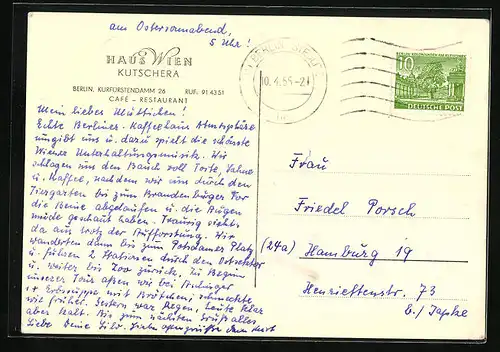 am Ostersonnabend,
5 Uhr!
HAUS WIEN
KUTSCHERA
BERLIN, KURFÜRSTENDAMM 26 RUF: 91 43 51
CAFÉ – RESTAURANT
Mein liebes Muttichen!
Echte Berliner-Kaffeehaus Atmosphäre
umgibt uns u. dazu spielt die schönste
Wiener Unterhaltungsmusik. Wir
schlagen uns den Bauch voll Torte, Sahne
u. Kaffee, nachdem wir uns durch den
Tiergarten bis zum Brandenburger Tor
die Beine abgelaufen u. die Augen
müde geschaut haben. Traurig sieht's
da aus trotz der Aufforstung. Wir
wanderten dann bis zum Potsdamer Platz
u. fuhren 2 Stationen durch den Ostsektor
u. weiter bis Zoo zurück. Zu Beginn
unserer Tour aßen wir bei Aschinger
Erbsuppe mit Brötchen; schmeckte
wie früher. Gestern war Regen, heute klar
aber kalt. Bis zum nächsten Gruß alles
Liebe Deine
BERLIN
10
BERLIN
DEUTSCHE POST
Frau
Friedel Porsch
(24a) Hamburg 19
Henriettenstr. 73
b./